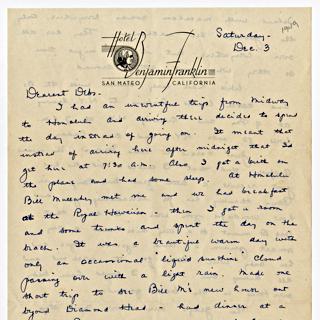 1949
Saturday -
Dec. 3
Hotel
Benjamin Franklin
SAN MATEO CALIFORNIA
Dearest Deb -
I had an uneventful trip from Midway
to Honolulu and arriving there decided to spend
the day instead of going on. It meant that
instead of arriving here after midnight that I'd
get here at 7:30 a.m. Also I got a berth on
the plane and had some sleep. At Honolulu
Bill met me and we had breakfast
at the Royal Hawaiian - then I got a room
and some trunks and spent the day on the
beach. It was a beautiful warm day with
only an occassional "liquid sunshine" cloud
passing over with a light rain. Made one
short trip to see Bill M's new house out
beyond Diamond Head - had dinner at a